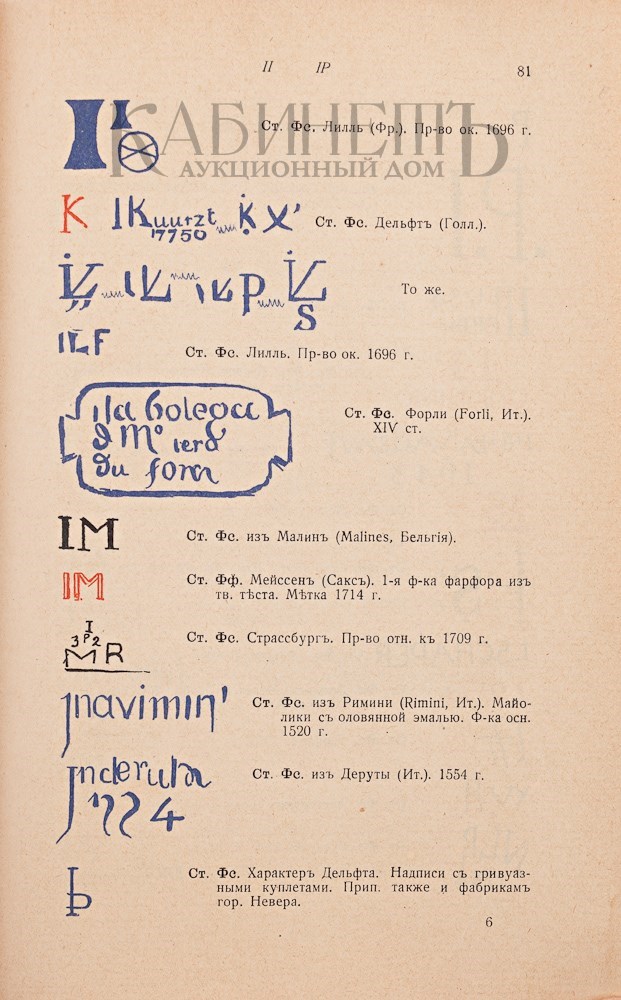 II IP 81
КАБИНЕТЪ
АУКЦИОННЫЙ ДОМ
Ст. Фс. Лилль (Фр.). Пр-во ок. 1696 г.
K IKuurzt K X'
17750
Ст. Фс. Дельфтъ (Голл.).
То же.
ILF
Ст. Фс. Лилль. Пр-во ок. 1696 г.
Ст. Фс. Форли (Forli, Ит.).
XIV ст.
IM
Ст. Фс. изъ Малинъ (Malines, Бельгія).
IM
Ст. Фф. Мейссенъ (Саксъ). 1-я ф-ка фарфора изъ
тв. тѣста. Мѣтка 1714 г.
I
3 P 2
MR
Ст. Фс. Страссбургъ. Пр-во отн. къ 1709 г.
Ст. Фс. изъ Римини (Rimini, Ит.). Майо-
лики съ оловянной эмалью. Ф-ка осн.
1520 г.
Ст. Фс. изъ Деруты (Ит.). 1554 г.
Ст. Фс. Характеръ Дельфта. Надписи съ гривуаз-
ными куплетами. Прип. также и фабрикамъ
гор. Невера.
6